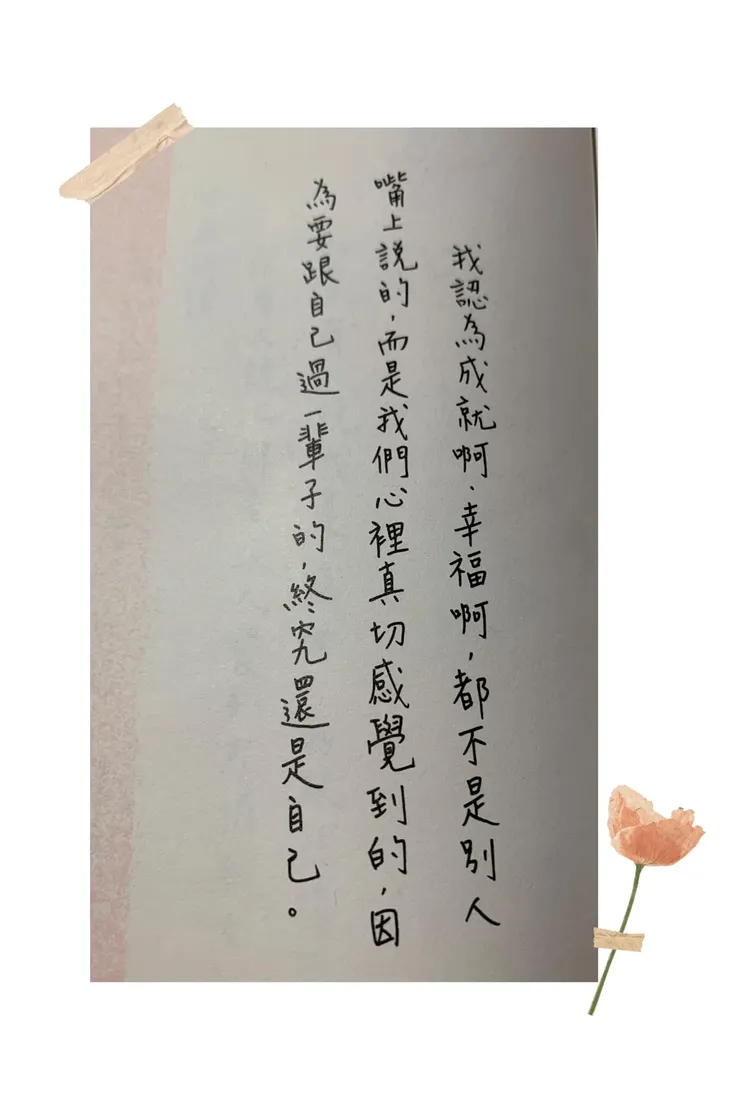 我認為成就啊、幸福啊，都不是別人
嘴上說的，而是我們心裡真切感覺到的，因
為要跟自己過一輩子的，終究還是自己。